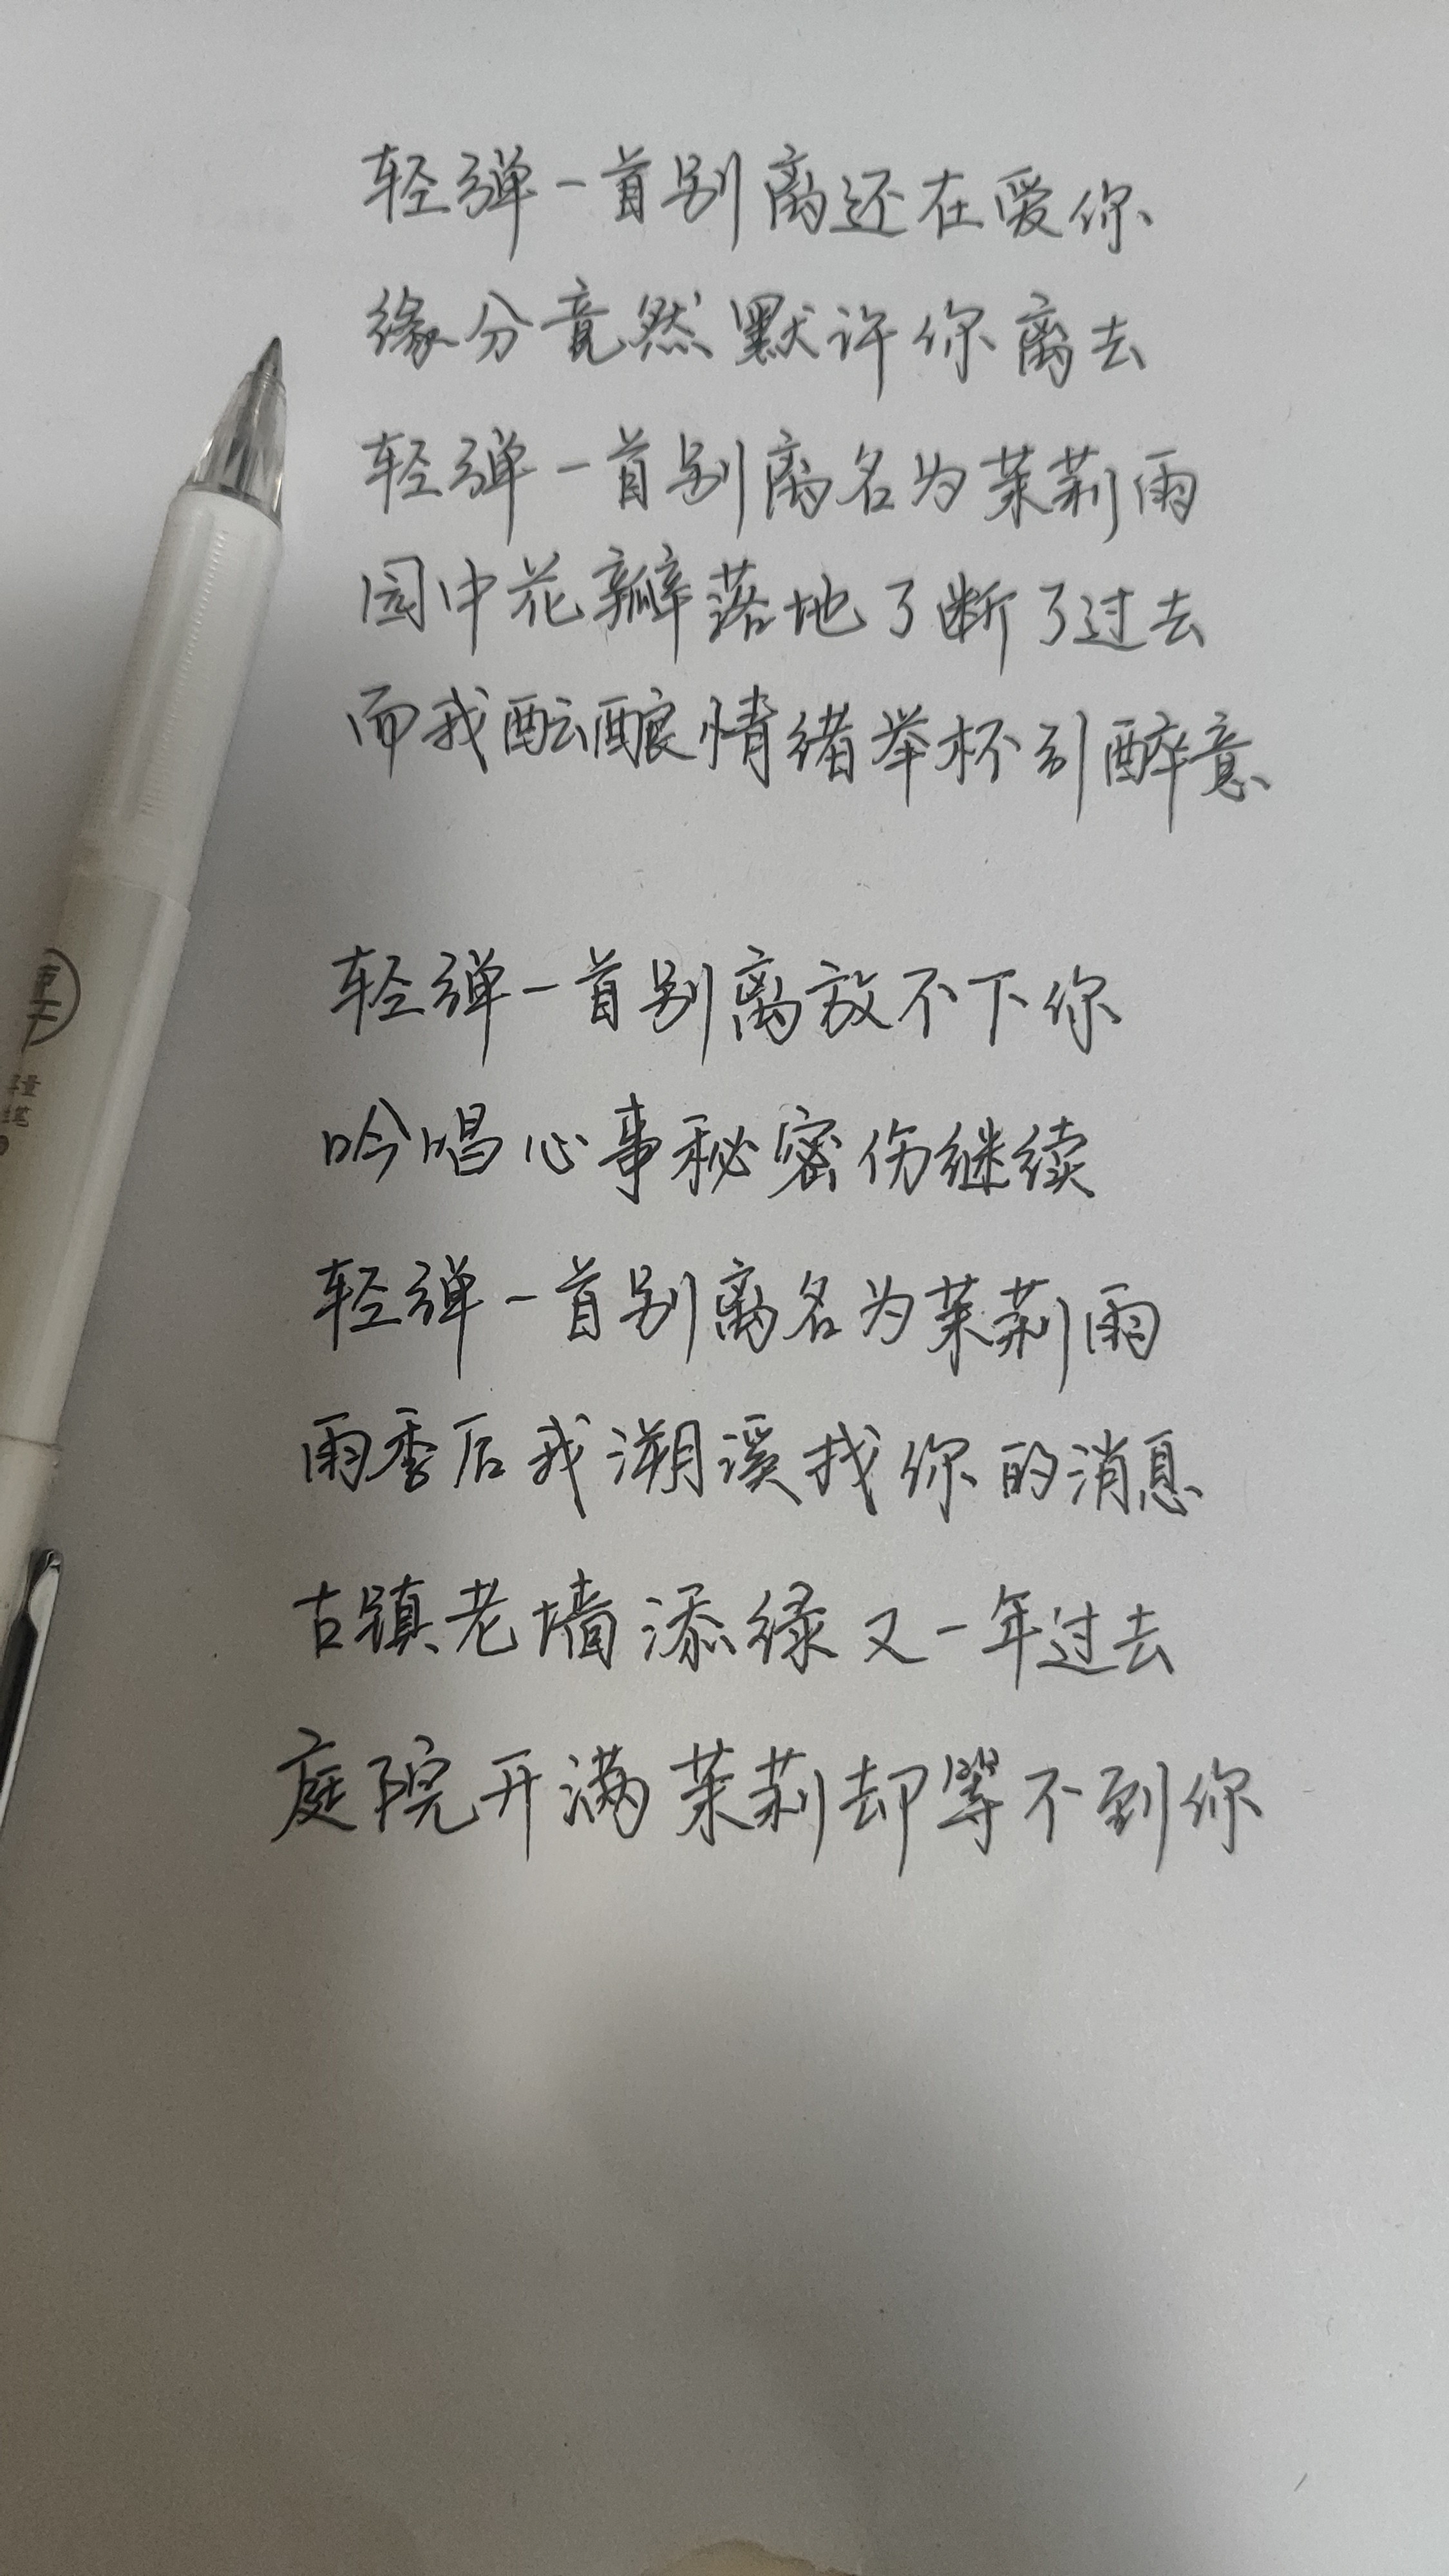 轻弹一首别离还在爱你
缘分竟然默许你离去
轻弹一首别离名为茉莉雨
园中花瓣落地了断了过去
而我酝酿情绪举杯引醉意
轻弹一首别离放不下你
吟唱心事秘密伤继续
轻弹一首别离名为茉莉雨
雨季后我溯溪找你的消息
古镇老墙添绿又一年过去
庭院开满茉莉却等不到你